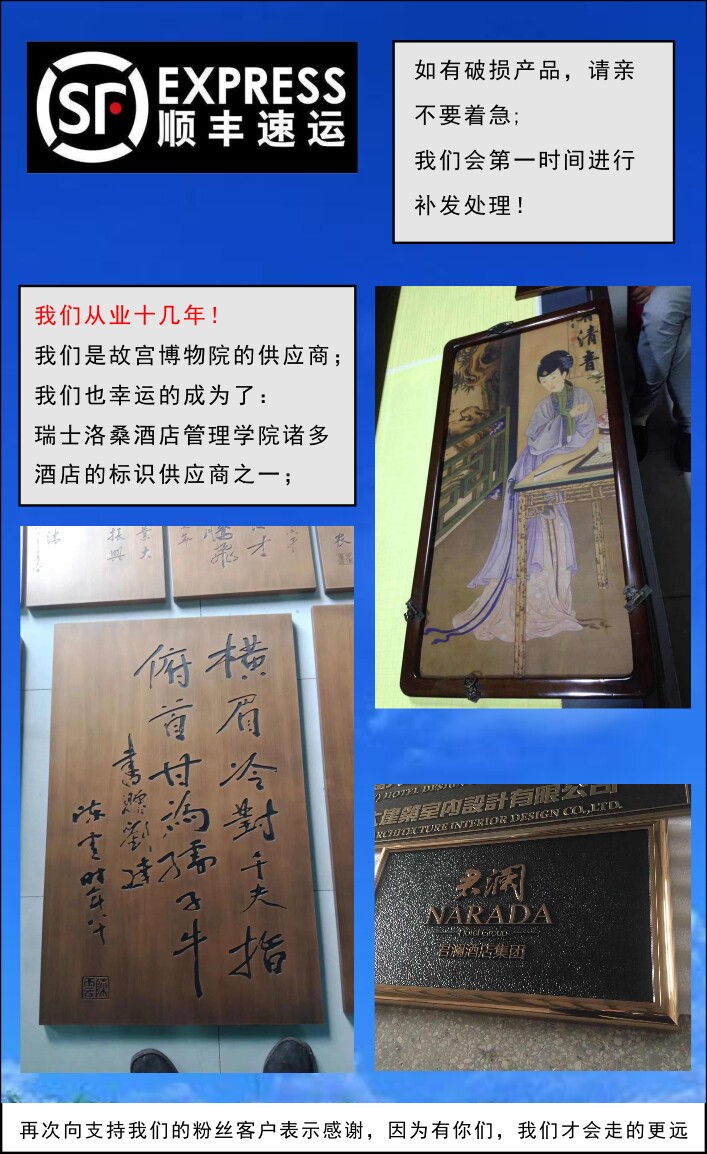 SF
EXPRESS
顺丰速运
如有破损产品，请亲
不要着急;
我们会第一时间进行
补发处理！
我们从业十几年！
我们是故宫博物院的供应商；
我们也幸运的成为了：
瑞士洛桑酒店管理学院诸多
酒店的标识供应商之一；
清音
业大
振興
才
騰飛
農
橫眉冷對千夫指
俯首甘為孺子牛
書贈劉建
陈雲時年八十
HOTEL DESIGN
建築室內設計有限公司
ARCHITECTURE INTERIOR DESIGN CO.,LTD.
君澜
NARADA
Hotel Group
君澜酒店集团
再次向支持我们的粉丝客户表示感谢，因为有你们，我们才会走的更远